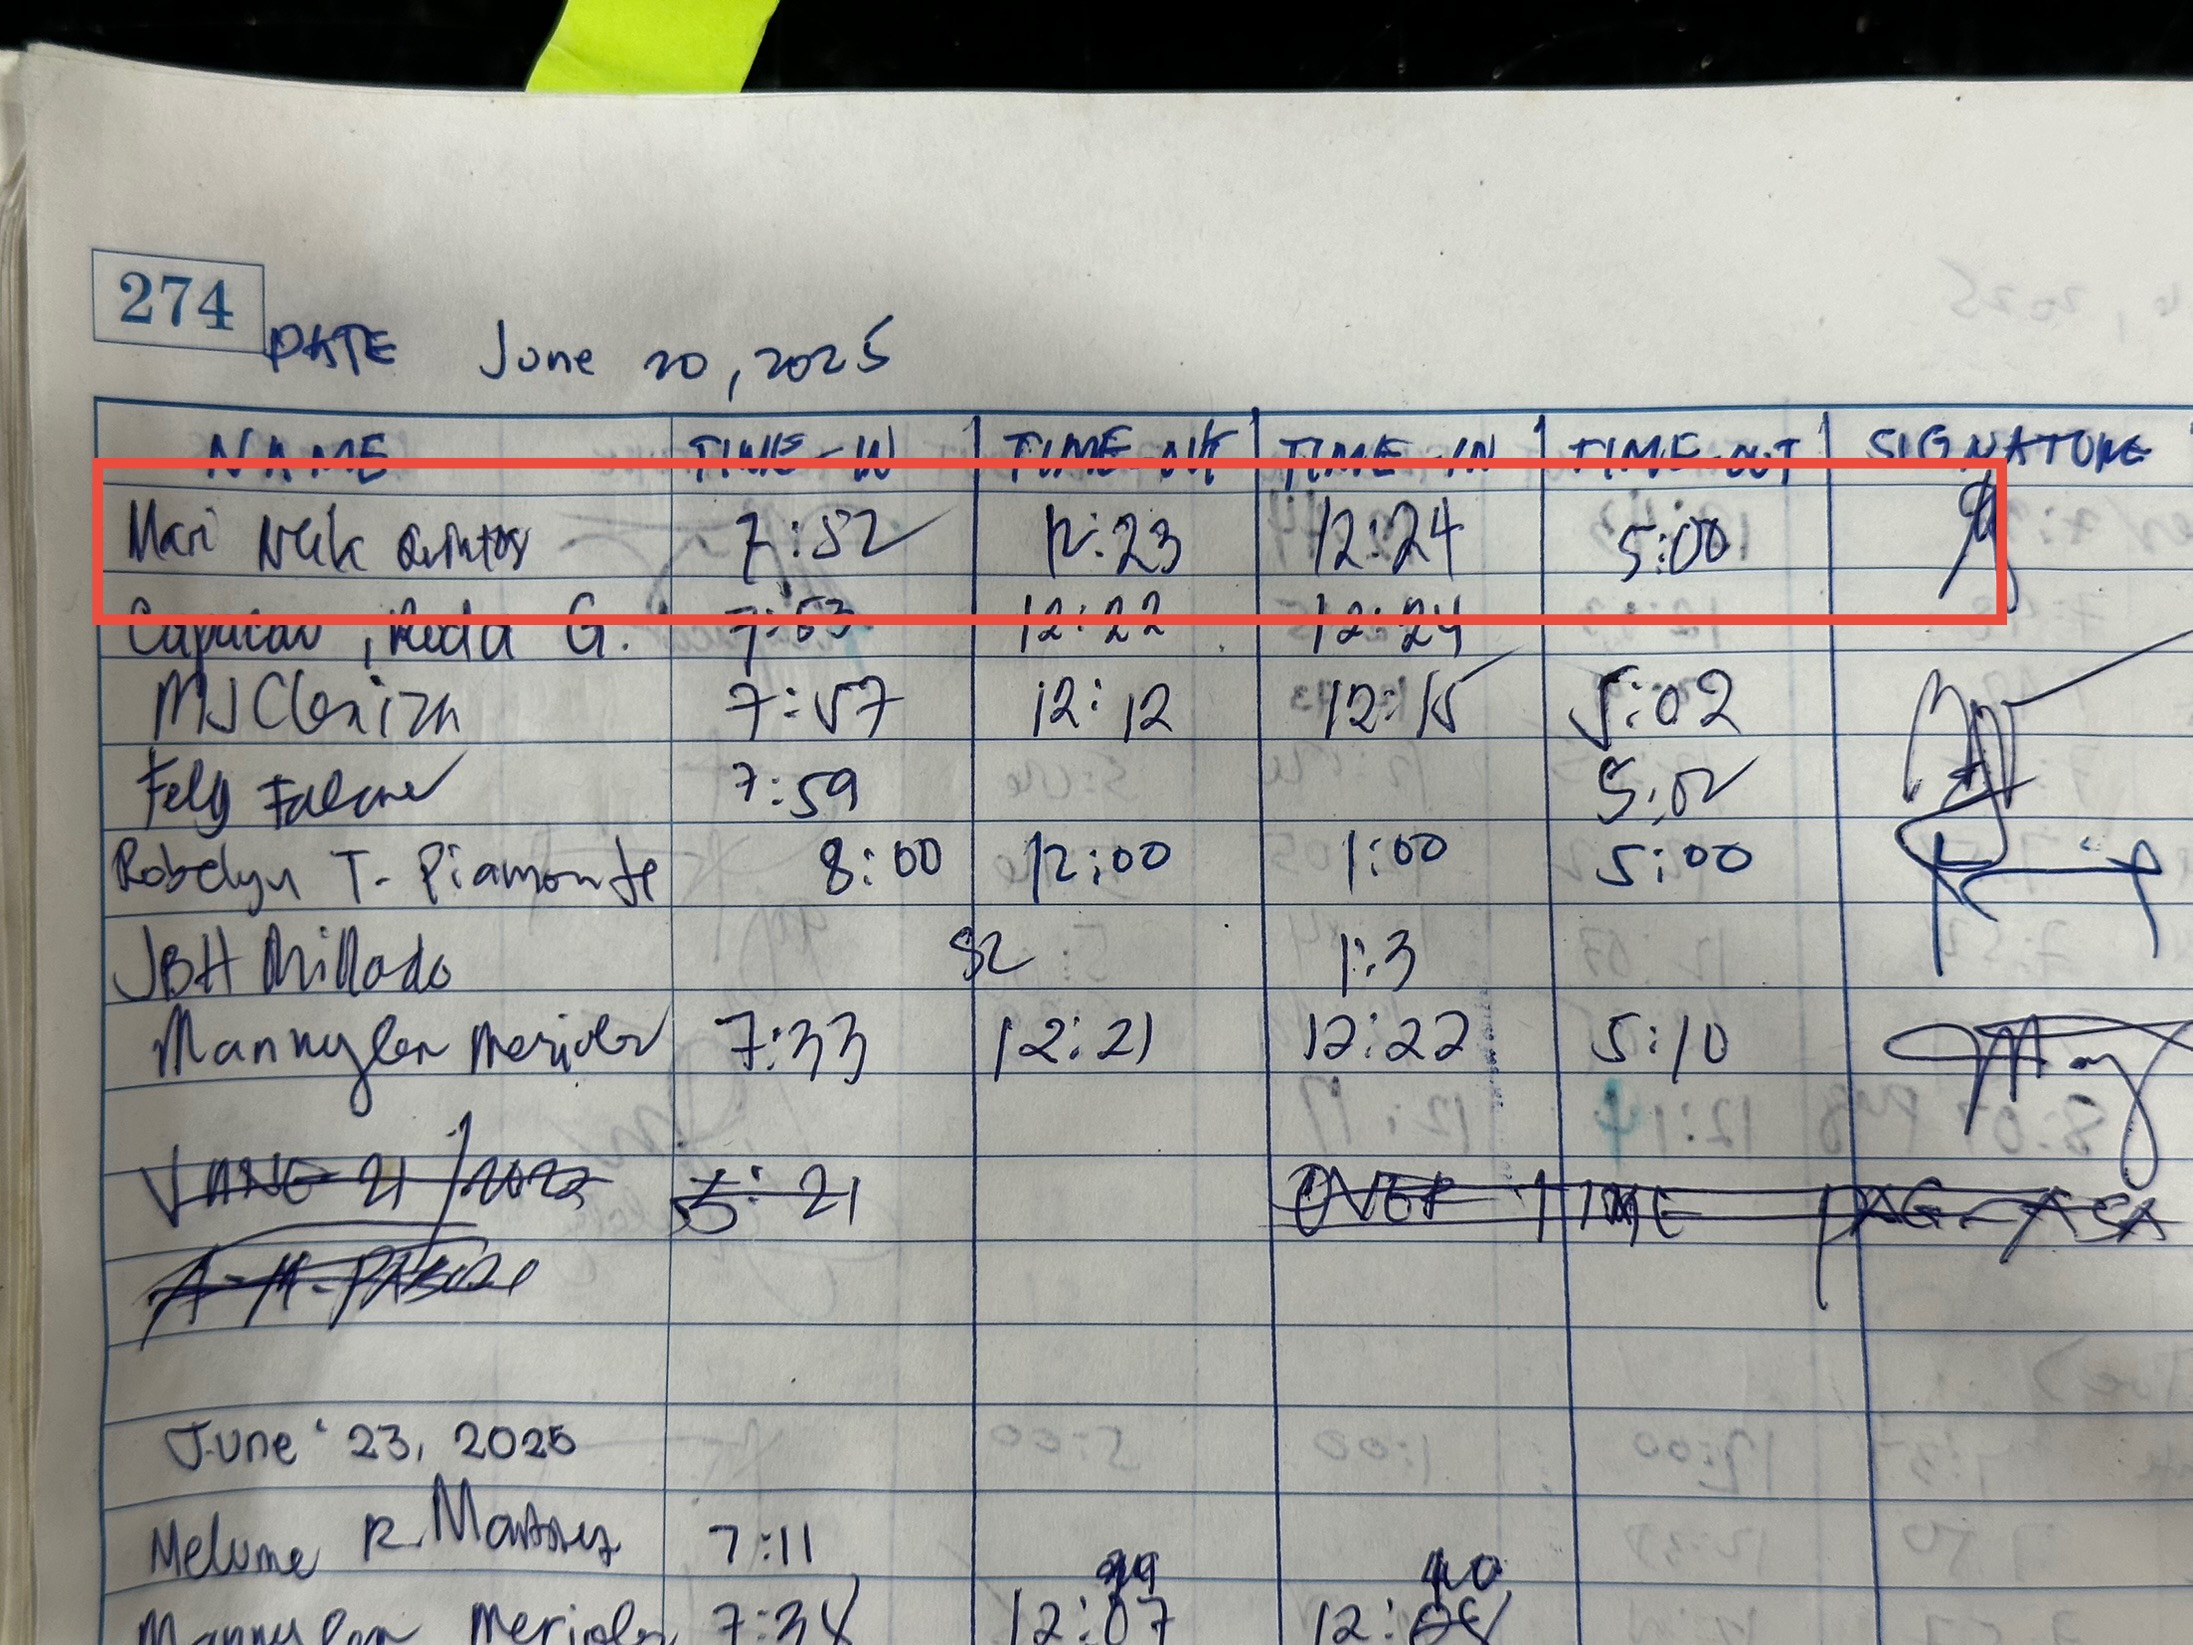 274
DATE June 20, 2025
NAME TIME-IN TIME-OUT TIME-IN TIME-OUT SIGNATURE
Mari Quintos 7:52 12:23 12:24 5:00
G. 7:53 12:22 12:24
MJ Cleniza 7:57 12:12 12:15 5:02
Fely 7:59 5:02
Robelyn T. Piamonte 8:00 12:00 1:00 5:00
JBH Millado 52 1:3
Mannylen Merioles 7:33 12:21 12:22 5:10
JUNE 21 5:21 OVER TIME PAG-ASA
June 23, 2025
R. Martinez 7:11
Mannylen Merioles 12:07